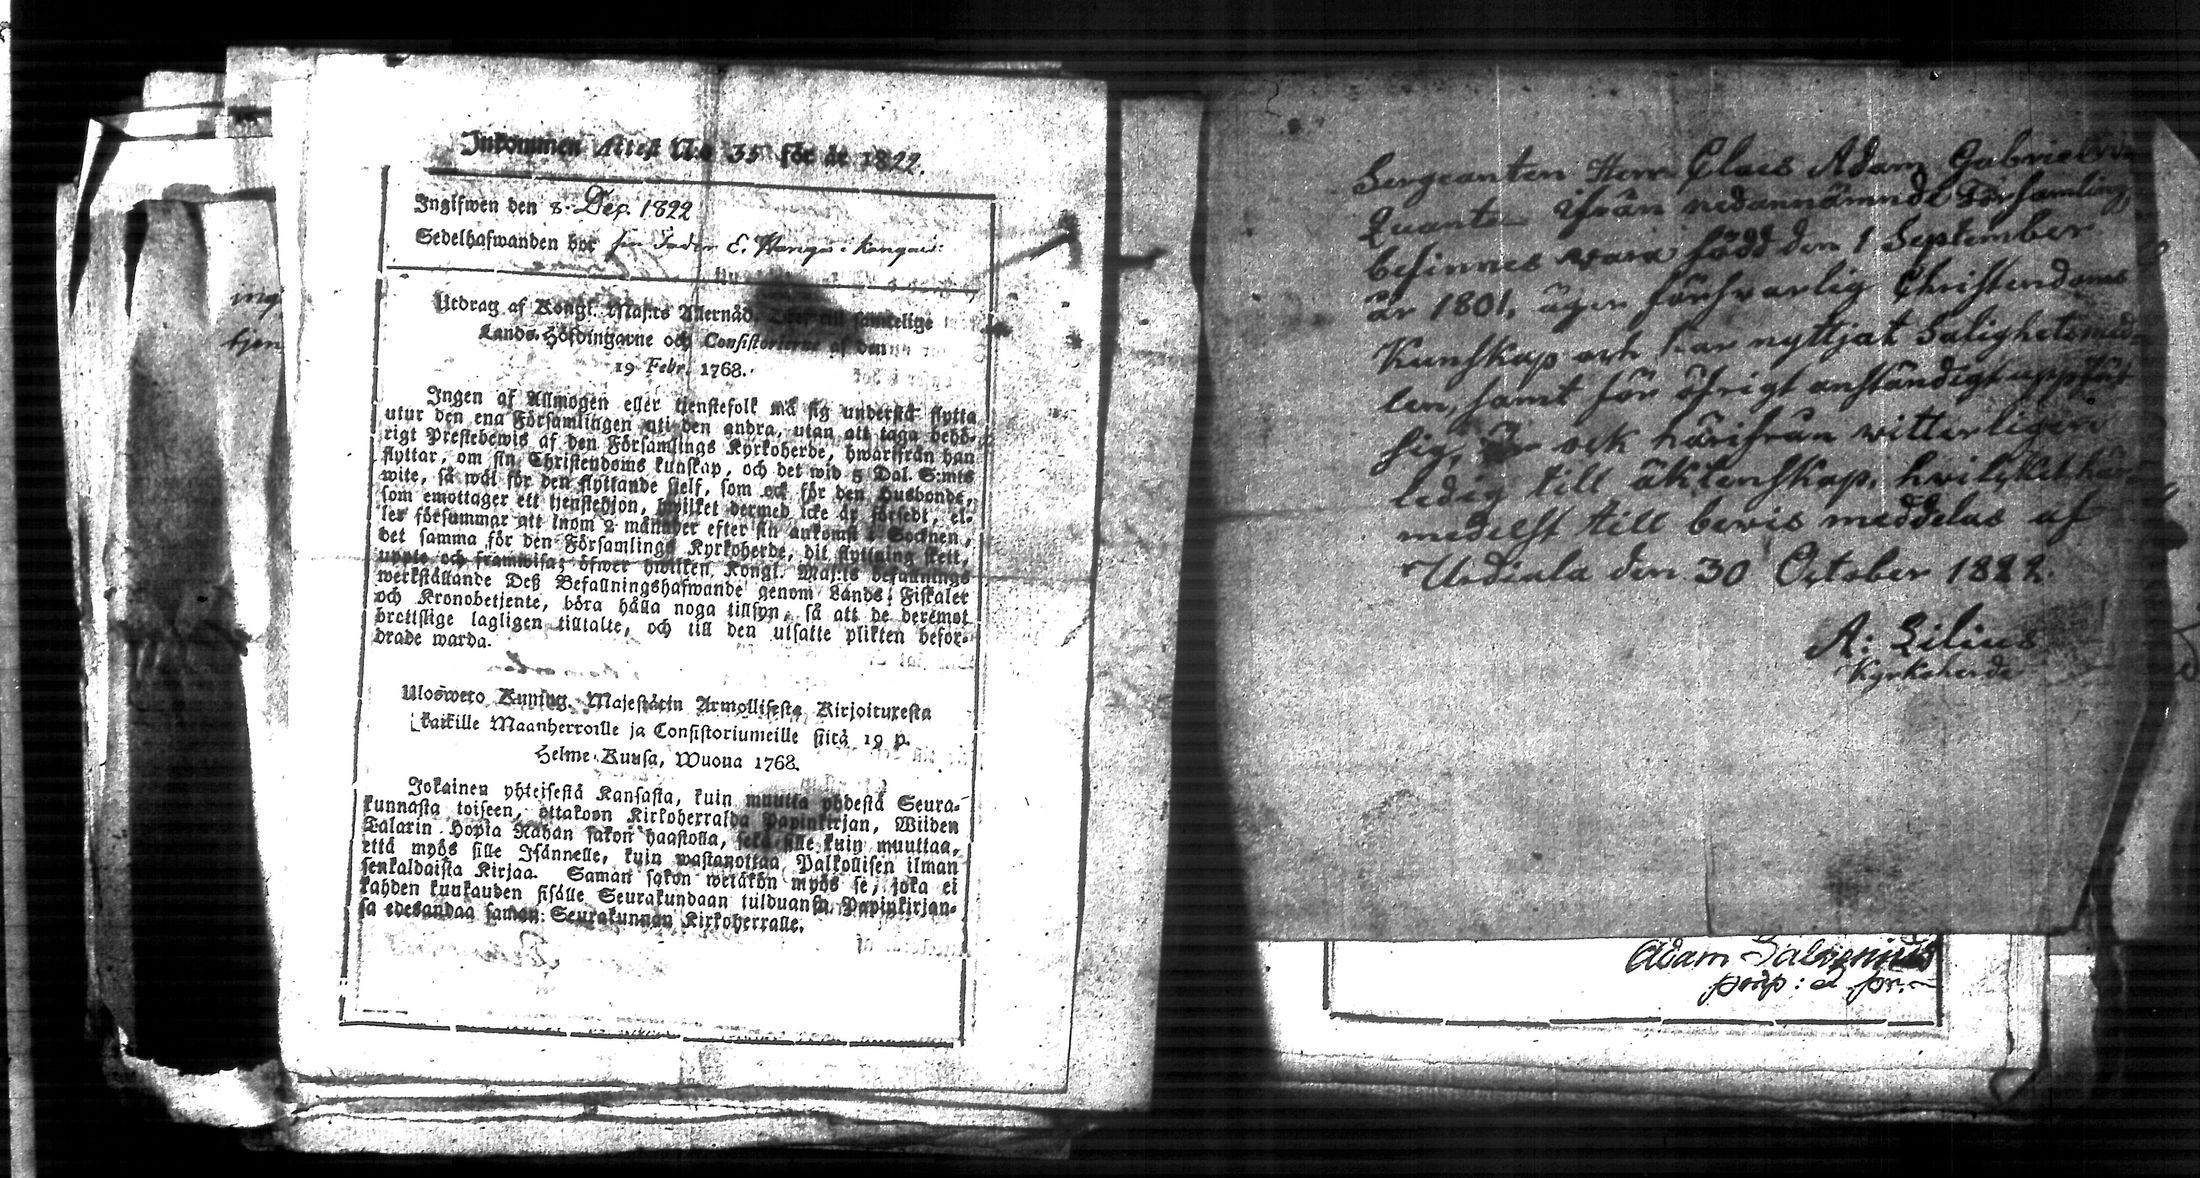 Inkommen Attest N:o 35 för år 1822.
Ingifwen den 8. Dec. 1822
Sedelhafwanden bor
Utdrag af Kongl. Maj:ts Allernåd. Bref till samtelige
Lands-Höfdingarne och Consistorierne af den
19 Febr. 1768.
Ingen af Allmogen eller tjenstefolk må sig understå flytta
utur den ena Församlingen till den andra, utan att taga behö-
rigt Prestebewis af den Församlings Kyrkoherde, hwarifrån han
flyttar, om sin Christendoms kunskap, och det wid 5 Dal. S:mts
wite, så wäl för den flyttande sjelf, som ock för den Husbonde,
som emottager ett tjenstehjon, hwilket dermed icke är försedt, el-
ler försummar att inom 2 månader efter sin ankomst i Socknen,
det samma för den Församlings Kyrkoherde, dit flyttning skett,
uppte och framwisa; öfwer hwilken Kongl. Maj:ts befallnings
werkställande Deß Befallningshafwande genom Lands-Fiskaler
och Kronobetjente, böra hålla noga tillsyn, så att de deremot
brottslige lagligen tilltalte, och till den utsatte plikten befor-
drade warda.
Ulosweto Kuning. Majestätin Armollisesta Kirjoituxesta
kaikille Maanherroille ja Consistoriumeille siitä 19 p.
Helme-Kuusa, Wuona 1768.
Jokainen yhteisestä Kansasta, kuin muutta yhdestä Seura-
kunnasta toiseen, ottakoon Kirkoherralda Papinkirjan, Wiiden
Talarin Hopia Rahan sakon haastolla, sekä sille kuin muuttaa,
että myös sille Isännelle, kuin wastanottaa Palkollisen ilman
senkaldaista Kirjaa. Saman sakon wetäkön myös se, joka ei
kahden kuukauden sisälle Seurakundaan tulduansa, Papinkirjan-
sa edesandaa saman Seurakunnan Kirkoherralle.
Sergeanten Herr Claes Adam Gabrielsson
Quanten ifrån nedannämnde Församling,
befinnes vara född den 1 September
år 1801, äger försvarlig Christendoms
Kunskap och har nyttjat Salighetsmed-
len, samt för öfrigt anständigt uppfört
sig, är ock härifrån vitterligen
ledig till äktenskap, hvilket här-
medelst till bevis meddelas af
Urdiala den 30 October 1822.
A: Lilius
Kyrkoherde
Adam